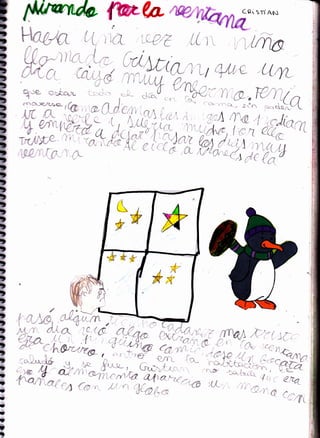 Mirando por la ventana
CRISTIAN
Habia una vez un niño
llamado Cristian, que un
dia cayó muy enfermo. Tenia
que estar todo el dia en la cama, sin poder
moverse, como ademas los amigos no podian
ir a verle, sufria mucho, por ello
y empezó a dejar pasar los dias muy
triste mirando al cielo a traves de la
ventana
pasó algún cada vez mas triste
un dia vió algo extraño en la ventana
Era un pingüino comiendose un bocata
de chorizo, entró en la habitación,
saludo y se fue, Cristian no sabia que era
eso y al momento aparecio un mono con
pañales con un globo